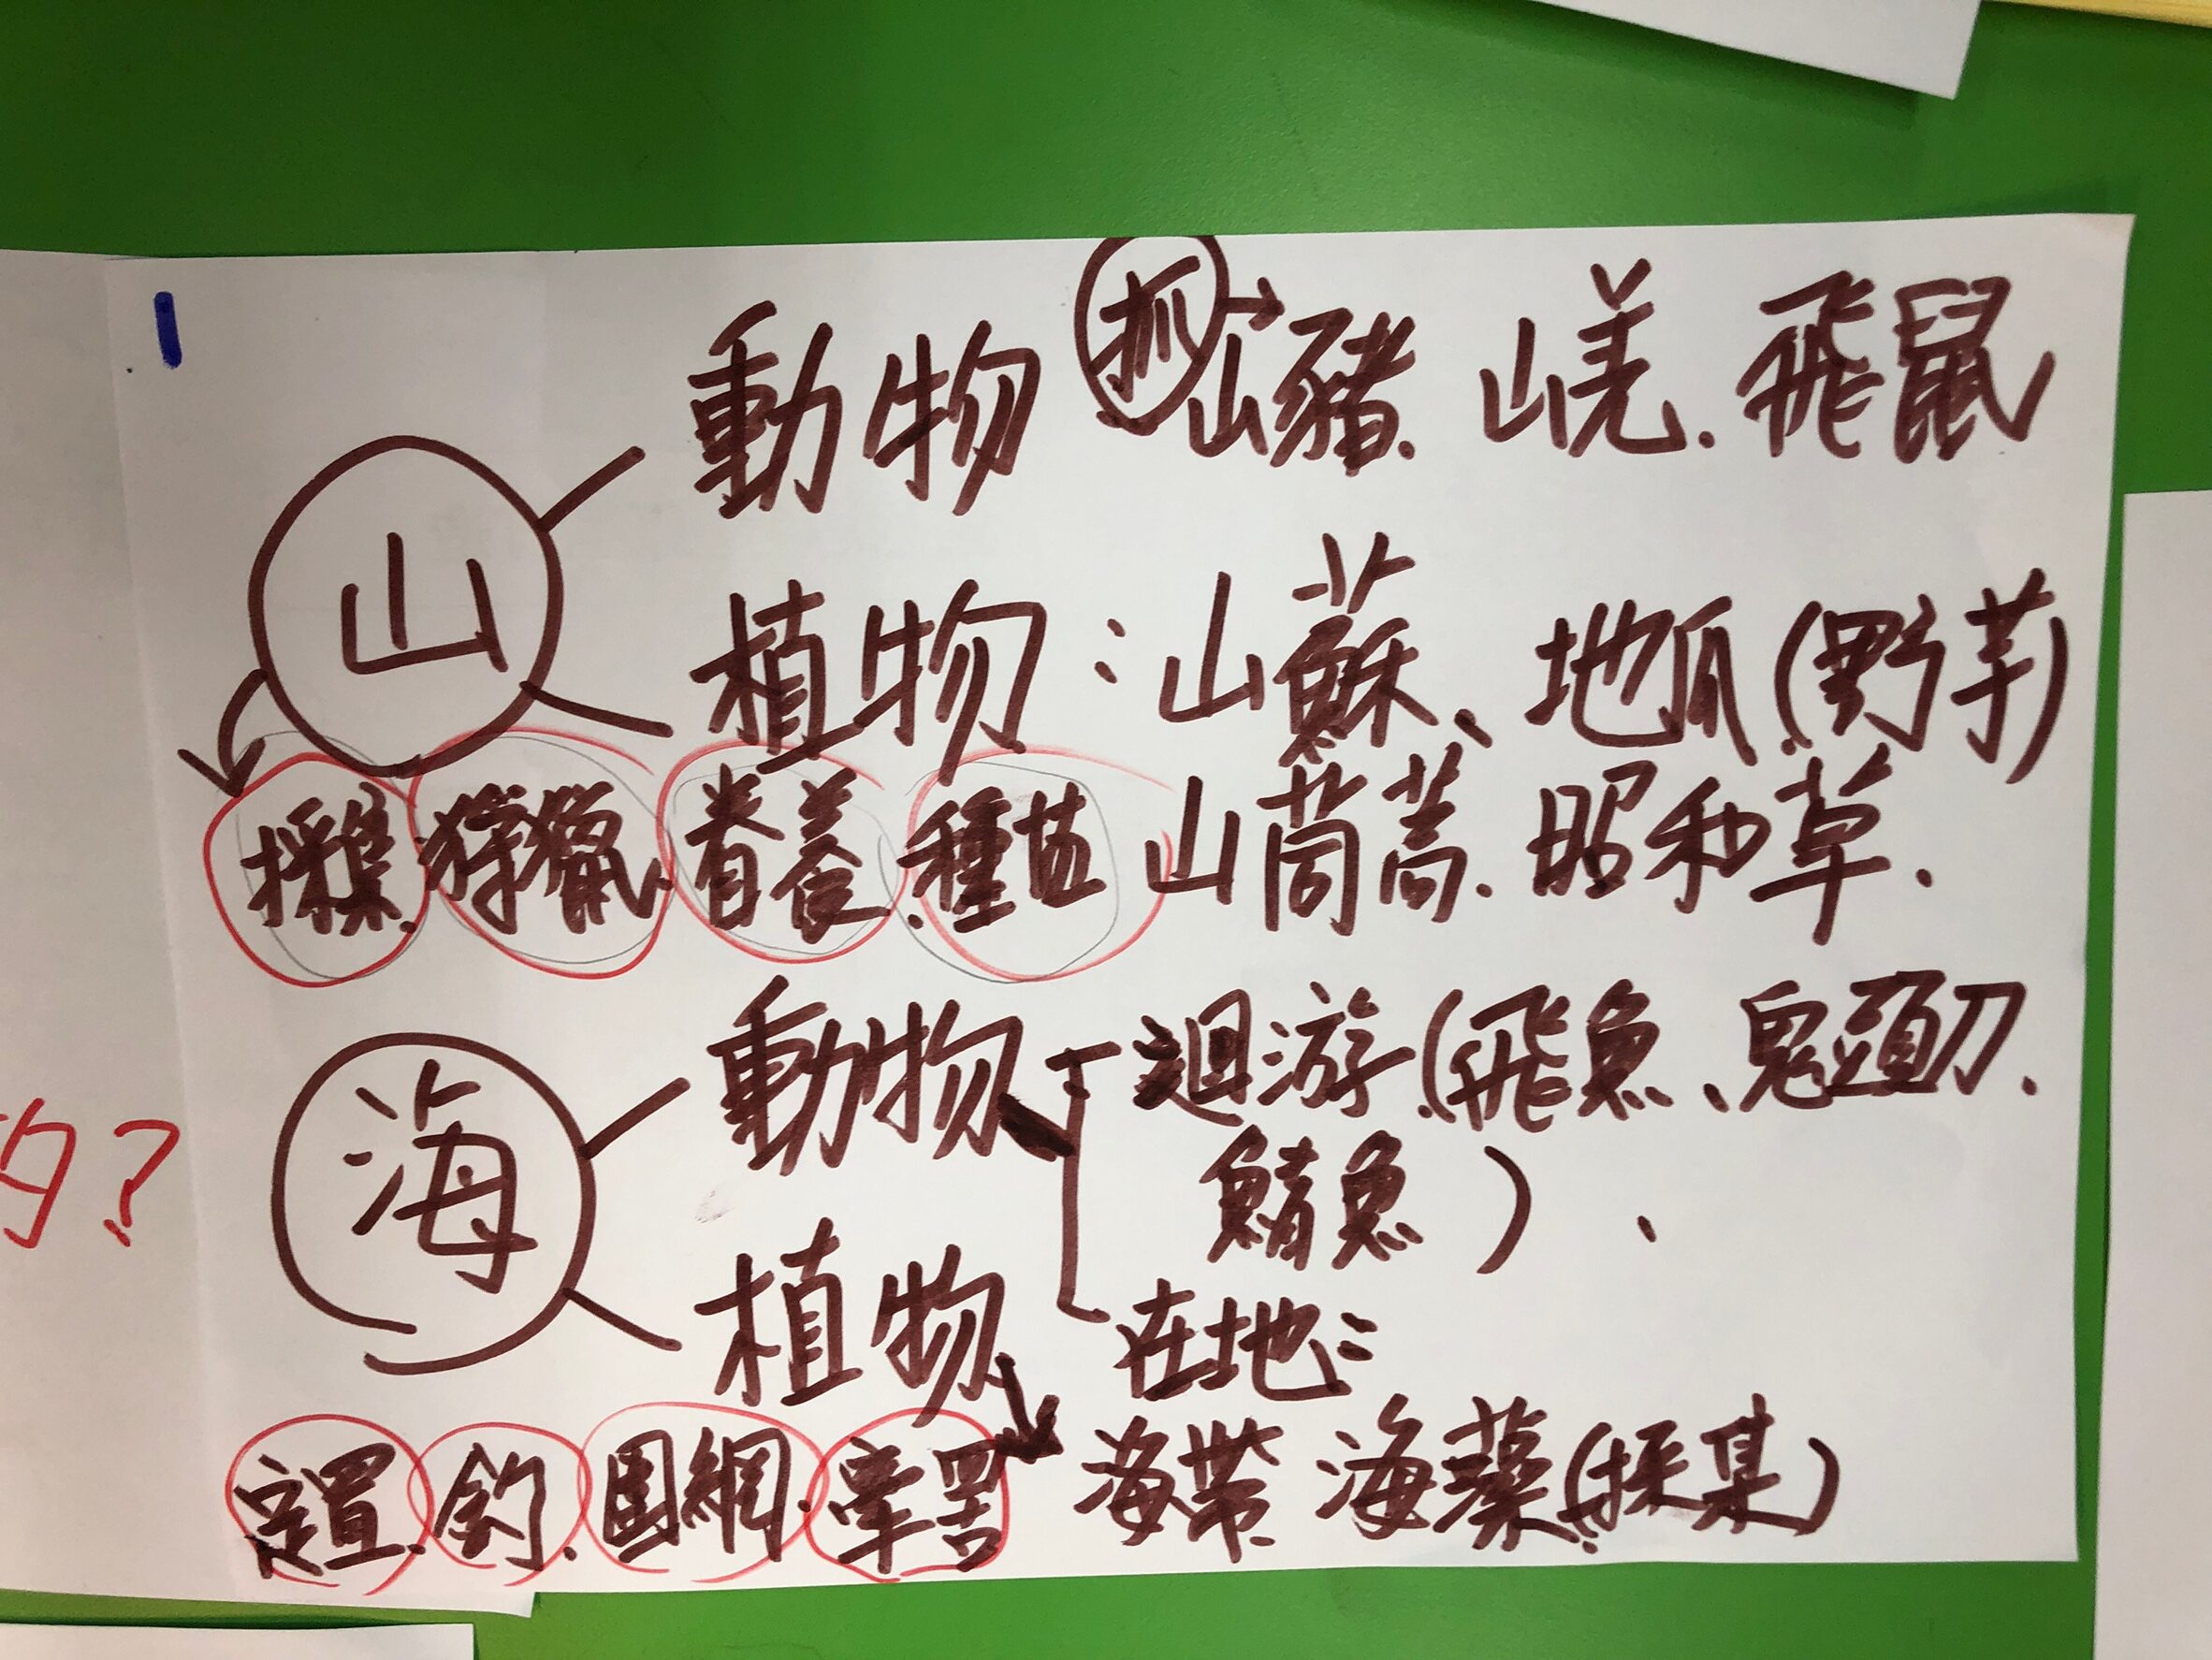 1
抓→山豬.山羌.飛鼠
動物
山
植物:山蘇、地瓜(野芋)
採集.狩獵.眷養.種植 山茼蒿.昭和草.
動物 迴游(飛魚、鬼頭刀.
鯖魚)、
海
的?
植物 在地:
定置.釣.圍網.牽罟 海帶 海藻(採集)